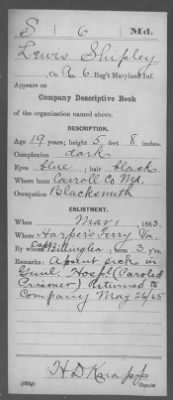 S 6 Md.
Lewis Shipley
, Co. A, 6 Reg't Maryland Inf.
Appears on
Company Descriptive Book
of the organization named above.
DESCRIPTION.
Age 19 years; height 5 feet 8 inches.
Complexion dark
Eyes blue; hair black
Where born Carroll Co Md.
Occupation Blacksmith
ENLISTMENT.
When Mar 1, 1863.
Where Harper's Ferry Va.
By whom Capt Billinglea; term 3 y'rs.
Remarks: Absent sick in
Genl. Hospl (Paroled
Prisoner) Returned to
Company May 26/65
H D
Copyist.